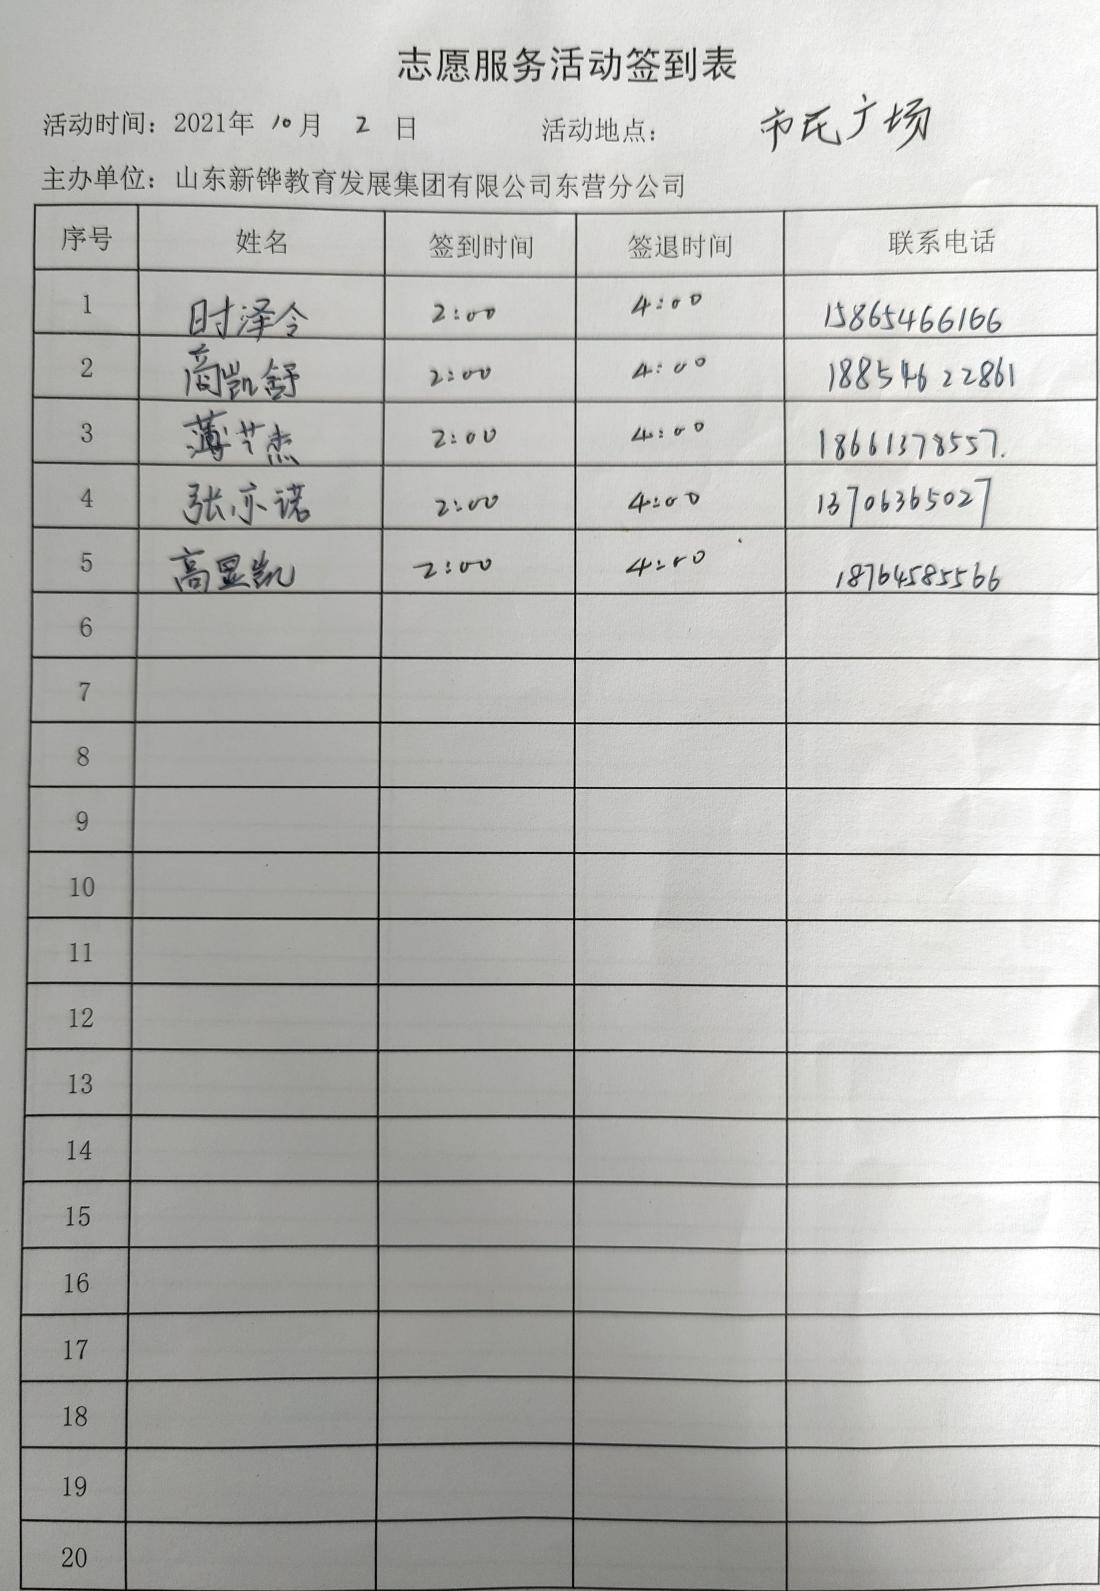 志愿服务活动签到表
活动时间：2021年 10月 2 日 活动地点： 市民广场
主办单位：山东新铧教育发展集团有限公司东营分公司
序号 姓名 签到时间 签退时间 联系电话
1 时泽令 2:00 4:00 15865466166
2 商凯舒 2:00 4:00 18854622861
3 薄艺杰 2:00 4:00 18661378557.
4 张亦诺 2:00 4:00 13706365027
5 高显凯 2:00 4:00 18764585566
6
7
8
9
10
11
12
13
14
15
16
17
18
19
20